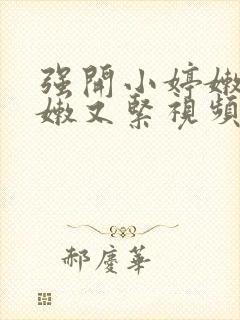 强開小婷嫩
嫩又緊視頻
郝慶華